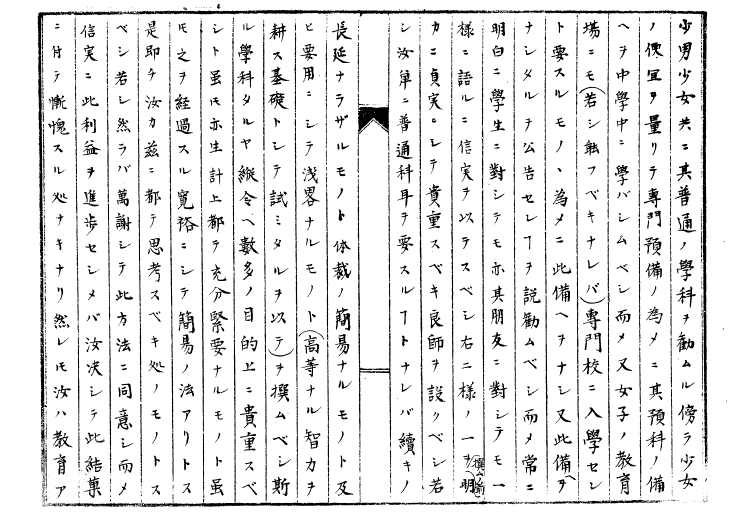 少男少女共ニ其普通ノ學科ヲ勸ムル傍ラ少女
ノ便宜ヲ量リテ專門預備ノ為メニ其預科ノ備
ヘヲ中學中ニ學バシムベシ而メ又女子ノ教育
場ニモ(若シ能フベキナレバ)專門校ニ入學セン
ト要スルモノヽ為メニ此備ヘヲナシ又此備ヘヲ
ナシタルヲ公告セしヿヲ説勸ムベシ而メ常ニ
明白ニ學生ニ對シテモ亦其朋友ニ對シテモ一
様ニ語ルニ信実ヲ以テスベシ右二様ノ一ヲ明
カニ貞実ニシテ貴重スベキ良師ヲ設クベシ若
シ汝単ニ普通科耳ヲ要スルヿトナレバ續キノ
長延ナラザルモノト体裁ノ簡易ナルモノト及
ヒ要用ニシテ浅畧ナルモノト(高等ナル智力ヲ
耕ス基礎トシテ試ミタルヲ以テ)ヲ撰ムベシ斯
ル學科タルヤ縦令ヘ数多ノ目的上ニ貴重スベ
シト虽モ亦生計上都テ充分緊要ナルモノト虽
モ之ヲ経過スル寛裕ニシテ簡易ノ法アリトス
是即チ汝カ茲ニ都テ思考スベキ処ノモノトス
ベシ若シ然ラバ萬謝シテ此方法ニ同意シ而メ
信実ニ此利益ヲ進歩セシメバ汝决シテ此結菓
ニ付テ慚愧スル処ナキナリ然レモ汝ハ教育ア